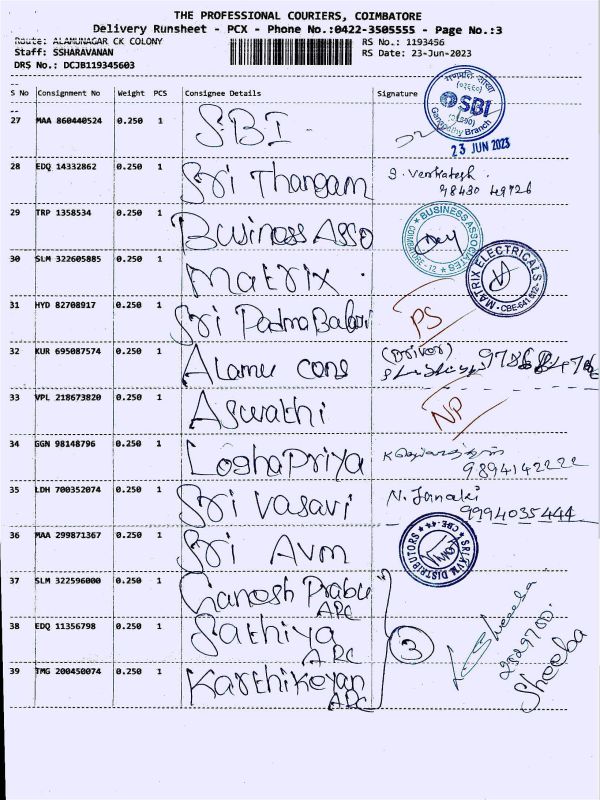 THE PROFESSIONAL COURIERS, COIMBATORE
Delivery Runsheet - PCX - Phone No.:0422-3505555 - Page No.:3
Route: ALAMUNAGAR CK COLONY
RS No.: 1193456
Staff: SSHARAVANAN
RS Date: 23-Jun-2023
DRS No.: DCJB119345603
S No Consignment No Weight PCS Consignee Details Signature
27 MAA 860440524 0.250 1 SBI
SBI
Ganapathy Branch
23 JUN 2023
28 EDQ 14332862 0.250 1 Sri Thangam S. Venkatesh.
98430 49726
29 TRP 1358534 0.250 1 Business Asso
★ BUSINESS ASSOCIATES ★ COIMBATORE - 12
30 SLM 322605885 0.250 1 Matrix
★ MATRIX ELECTRICALS ★ CBE-641 012
31 HYD 82708917 0.250 1 Sri Padma Balaji PS
32 KUR 695087574 0.250 1 Alamu cons (Driver)
33 VPL 218673820 0.250 1 Aswathi NP
34 GGN 98148796 0.250 1 Logha Priya
9894142222
35 LDH 700352074 0.250 1 Sri Vasavi N. Janaki
9994035444
36 MAA 299871367 0.250 1 Sri Avm
★ SRI AVM DISTRIBUTORS ★ CBE-44
37 SLM 322596000 0.250 1 Ganesh Prabu
APC
38 EDQ 11356798 0.250 1 Sathiya
APC
39 TMG 200450074 0.250 1 Karthikeyan
APC
3
Sheeba
2529700.
Sheeba